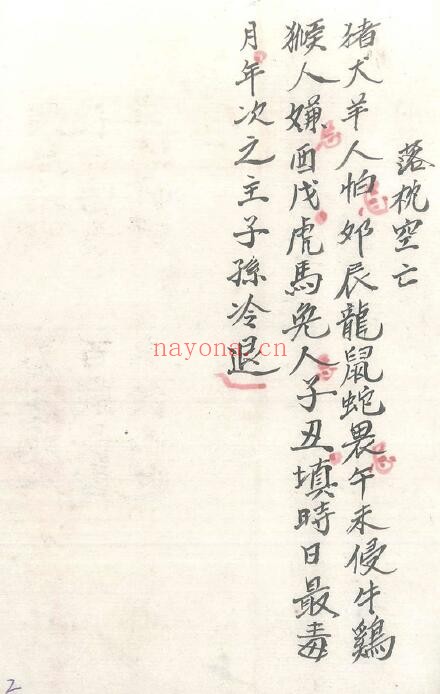 落枕空亡
猪犬羊人怕卯辰龍鼠蛇畏午未侵牛鷄
猴人嫌酉戌虎馬兔人子丑填時日最毒
月年次之主子孫冷退
忌
忌
忌
忌
nayona.cn
2